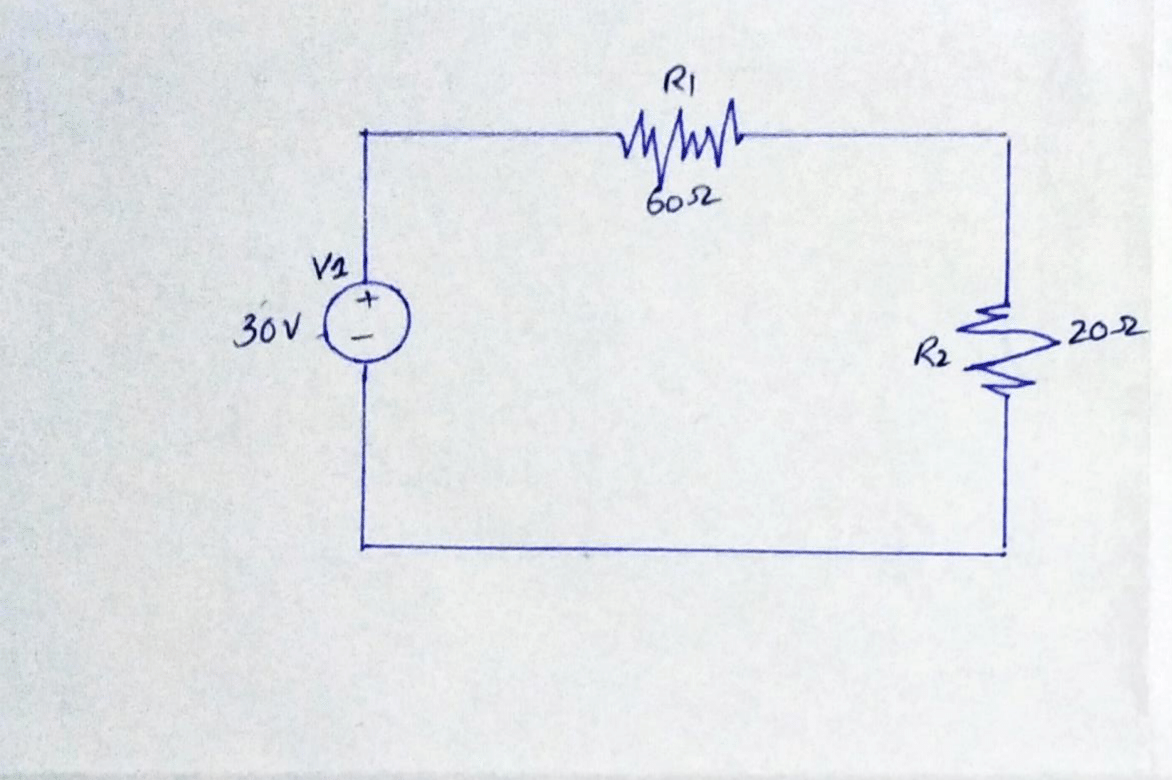 R1
60Ω
V1
+
30V
−
R2
20Ω